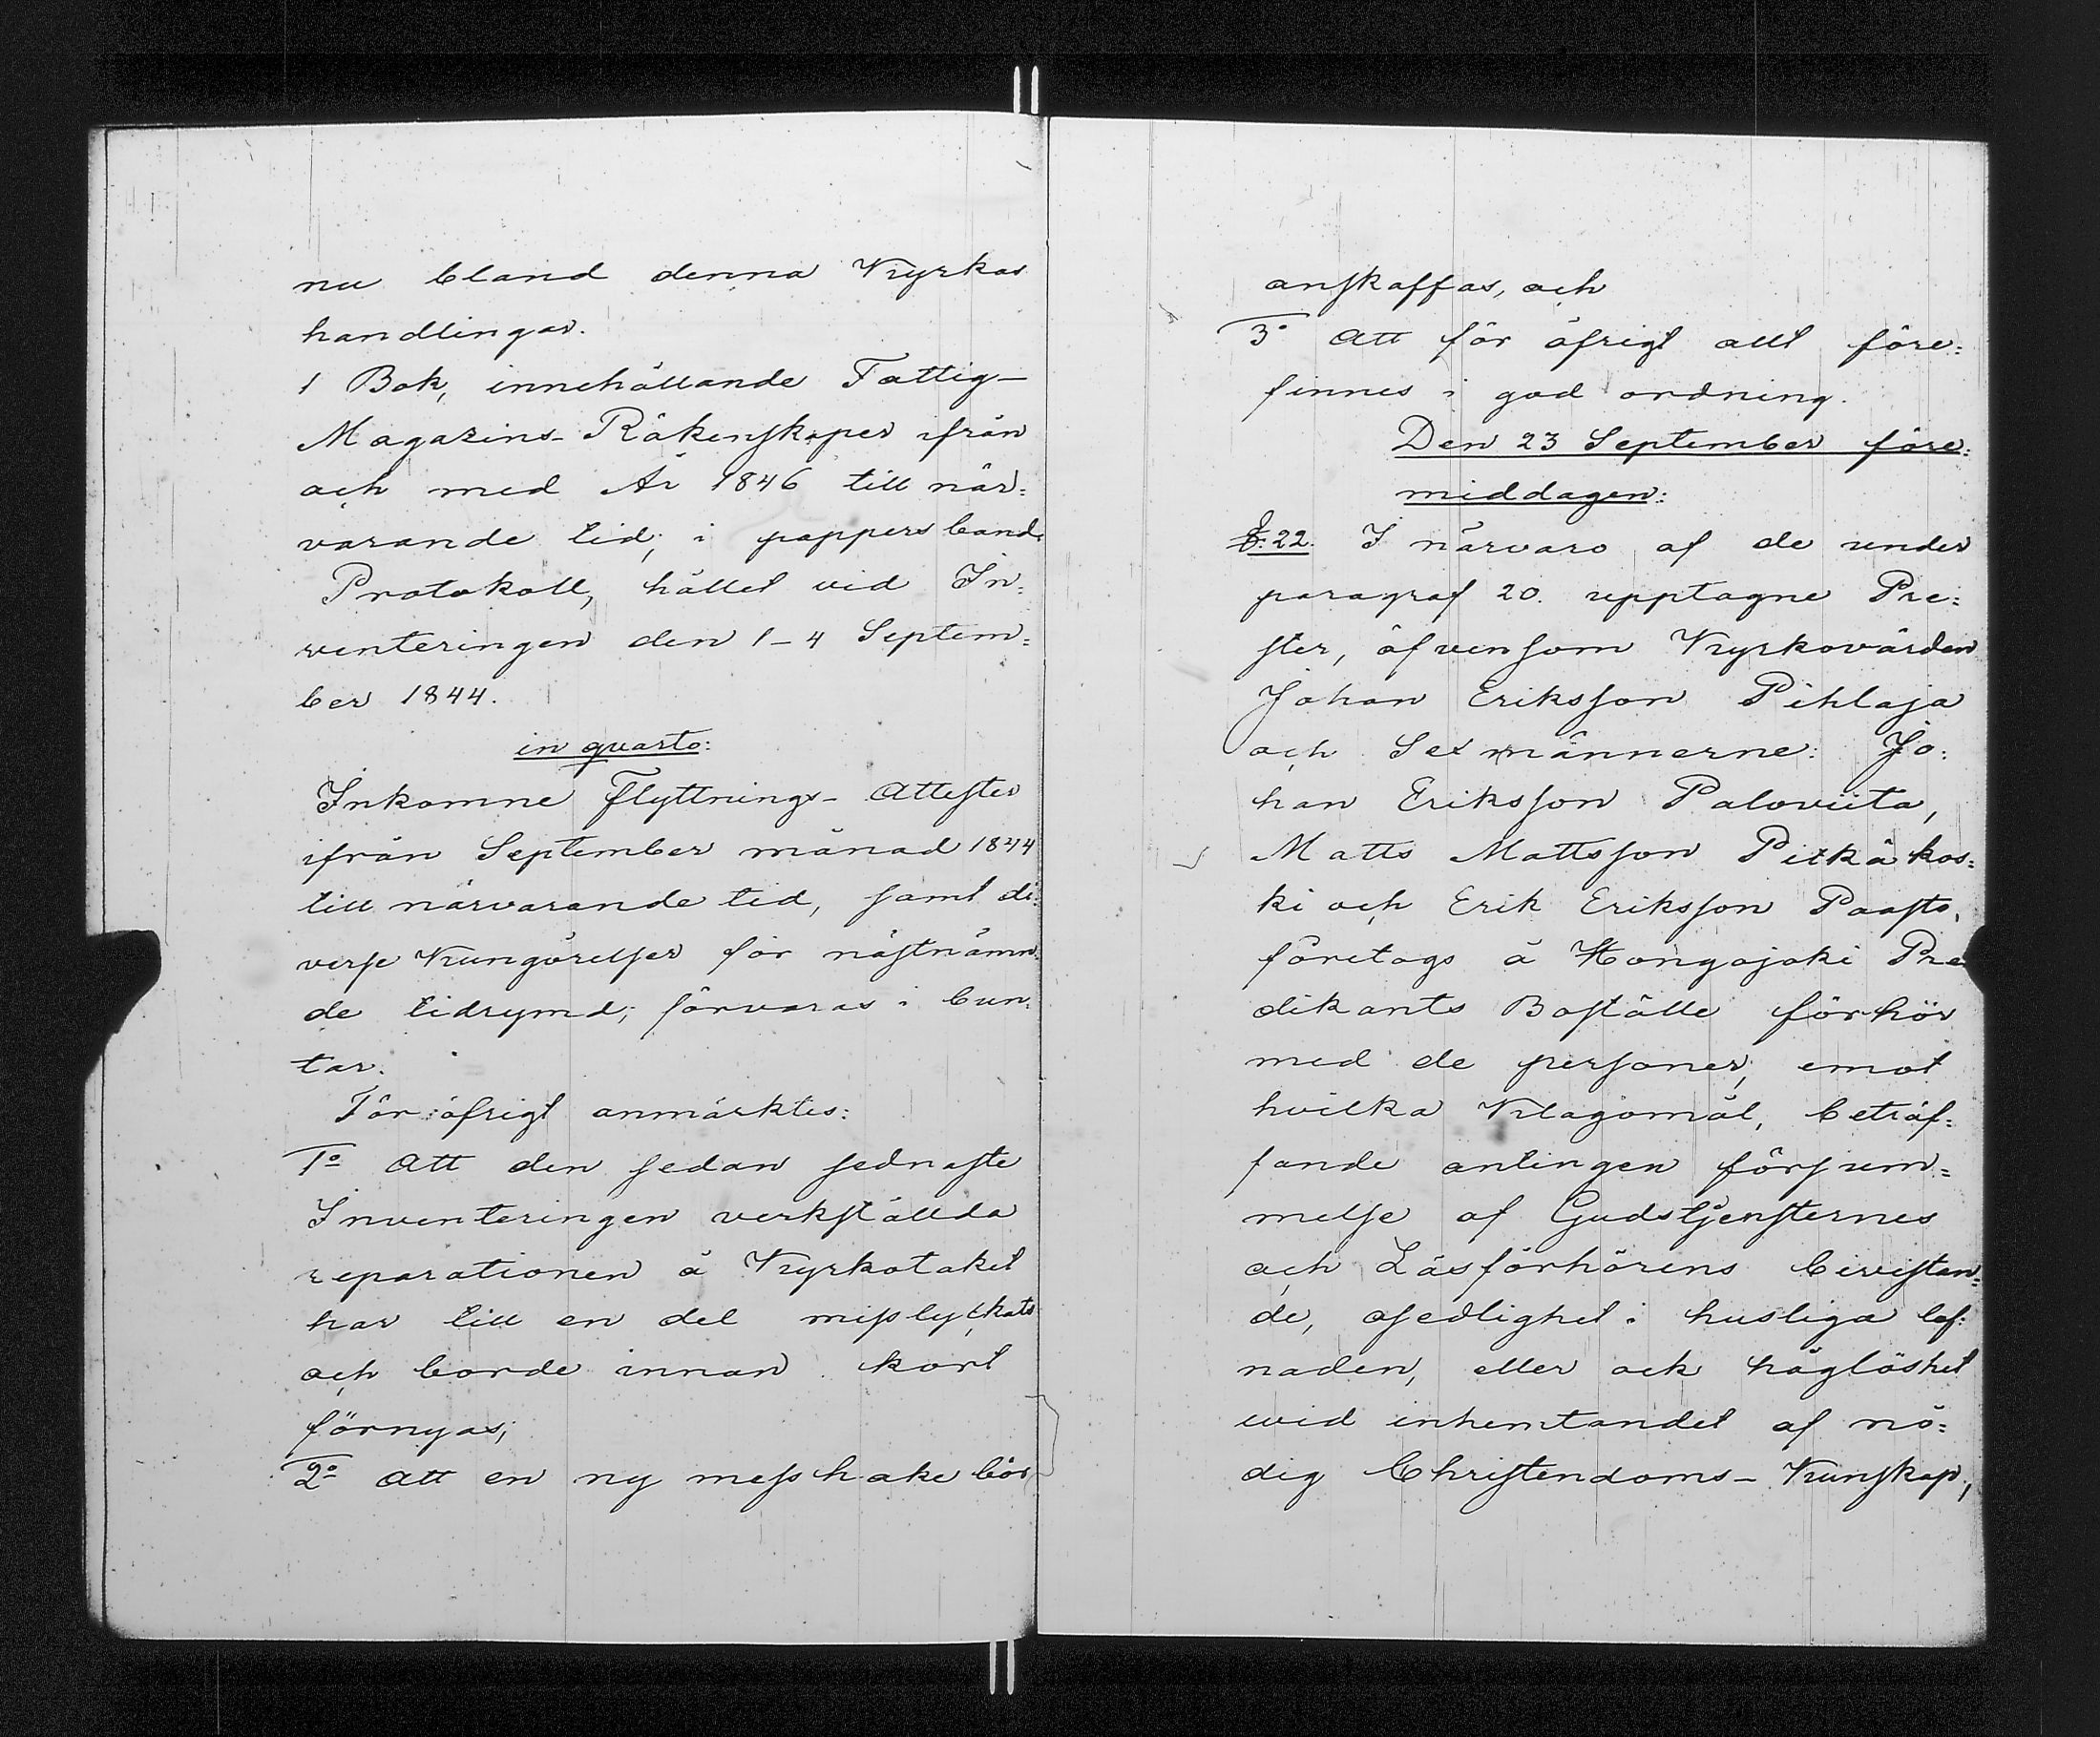 nu bland denna Kyrkas
handlingar.
1 Bok, innehållande Fattig-
Magazins-Räkenskaper ifrån
och med År 1846 till när=
varande tid; i pappers band.
Protokoll, hållet vid In=
venteringen den 1-4 Septem=
ber 1844.
in quarto:
Inkomne Flyttnings-Attester
ifrån September månad 1844
till närvarande tid, samt di=
verse Kungörelser för nästnämn=
de tidrymd; förvaras i bun=
tar.
För öfrigt anmärktes:
1o Att den sedan sednaste
Inventeringen verkställda
reparationen å Kyrkotaket
har till en del misslyckats
och borde innan kort
förnyas;
2o Att en ny messhake bör
anskaffas, och
3o Att för öfrigt allt före=
finnes i god ordning.
Den 23 September före=
middagen:
§. 22. I närvaro af de under
paragraf 20. upptagne Pre=
ster, äfvensom Kyrkovärden
Johan Eriksson Pihlaja
och Sexmännerne: Jo=
han Eriksson Paloviita,
Matts Mattsson Pitkäkos=
ki och Erik Eriksson Paasto,
företogs å Hongojoki Pre
dikants Boställe förhör
med de personer, emot
hvilka Klagomål, beträf=
fande antingen försum=
melse af Gudstjensternes
och Läsförhörens bevistan=
de, osedlighet i husliga lef=
naden, eller ock håglöshet
wid inhemtandet af nö=
dig Christendoms-Kunskap,